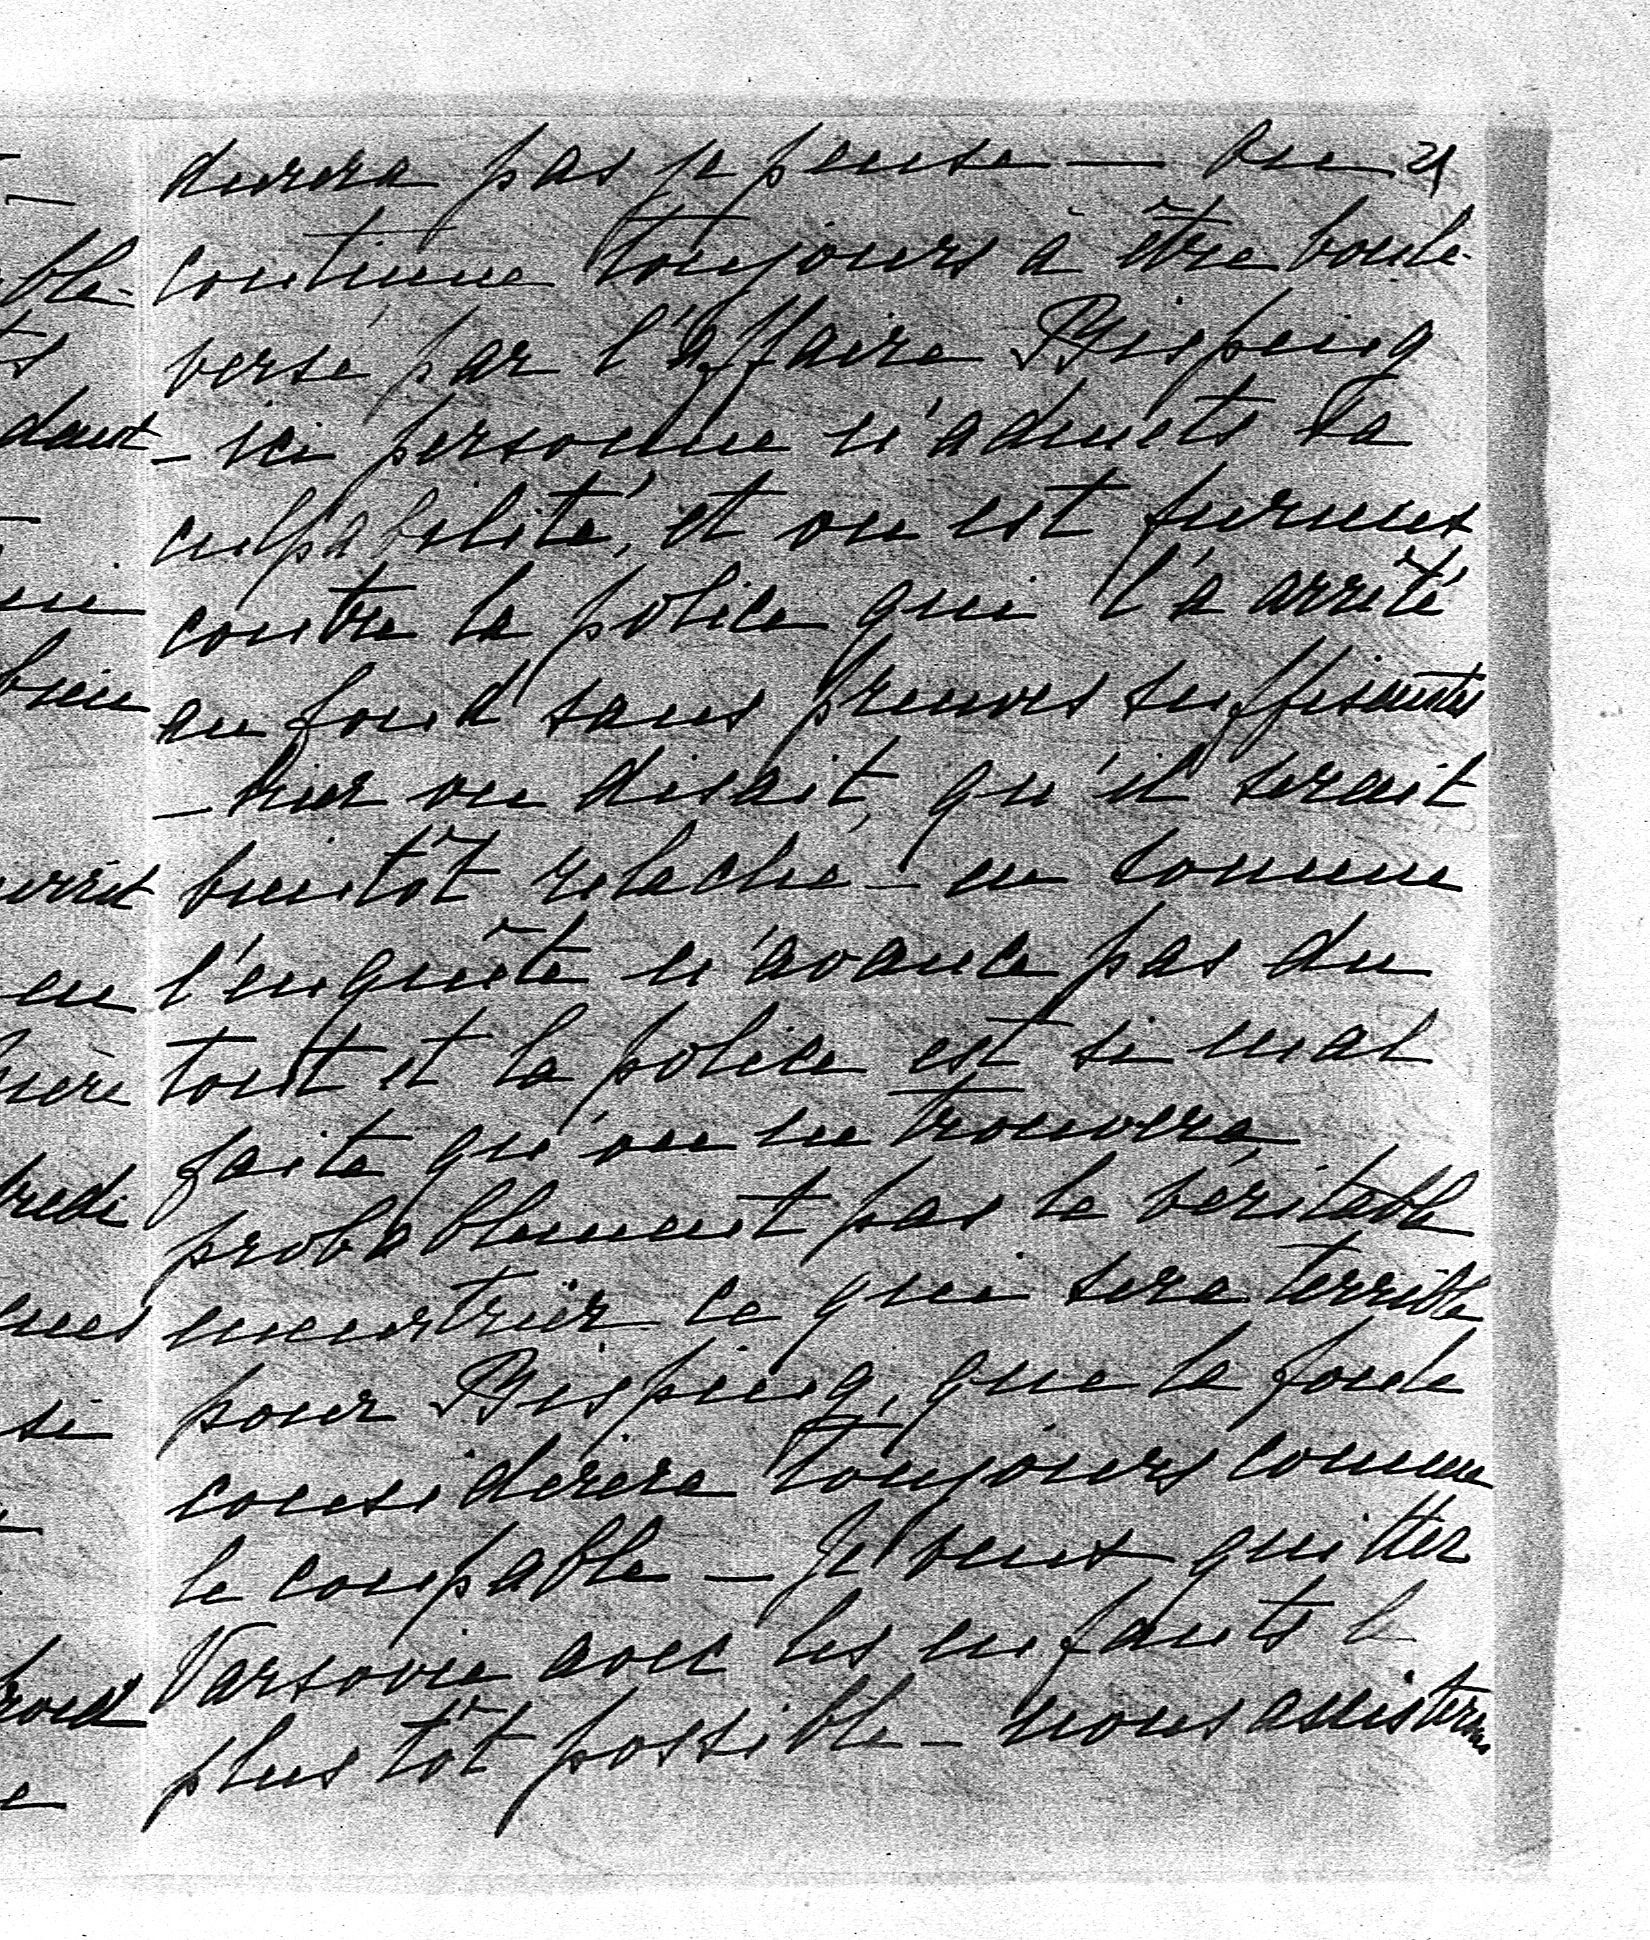 durera pas je pense — On 21
continue toujours à être boule-
versé par l'affaire Bisping
— ici personne n'admets sa
culpabilité, et on est furieux
contre la police qui l'a arrêté
au fond sans preuves suffisantes
— hier on disait, qu'il serait
bientôt relaché — en somme
l'enquête n'avance pas du
tout et la police est si mal
faite qu'on ne trouvera
probablement pas le véritable
meurtrier ce qui sera terrible
pour Bisping, que la foule
considèrera toujours comme
le coupable — Je veux quitter
Varsovie avec les enfants le
plus tôt possible — nous assisterons